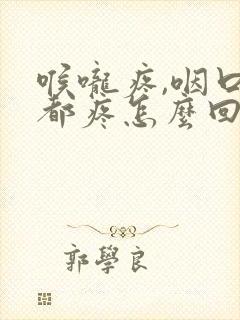 喉嚨疼,咽口
都疼怎麼回
郭學良